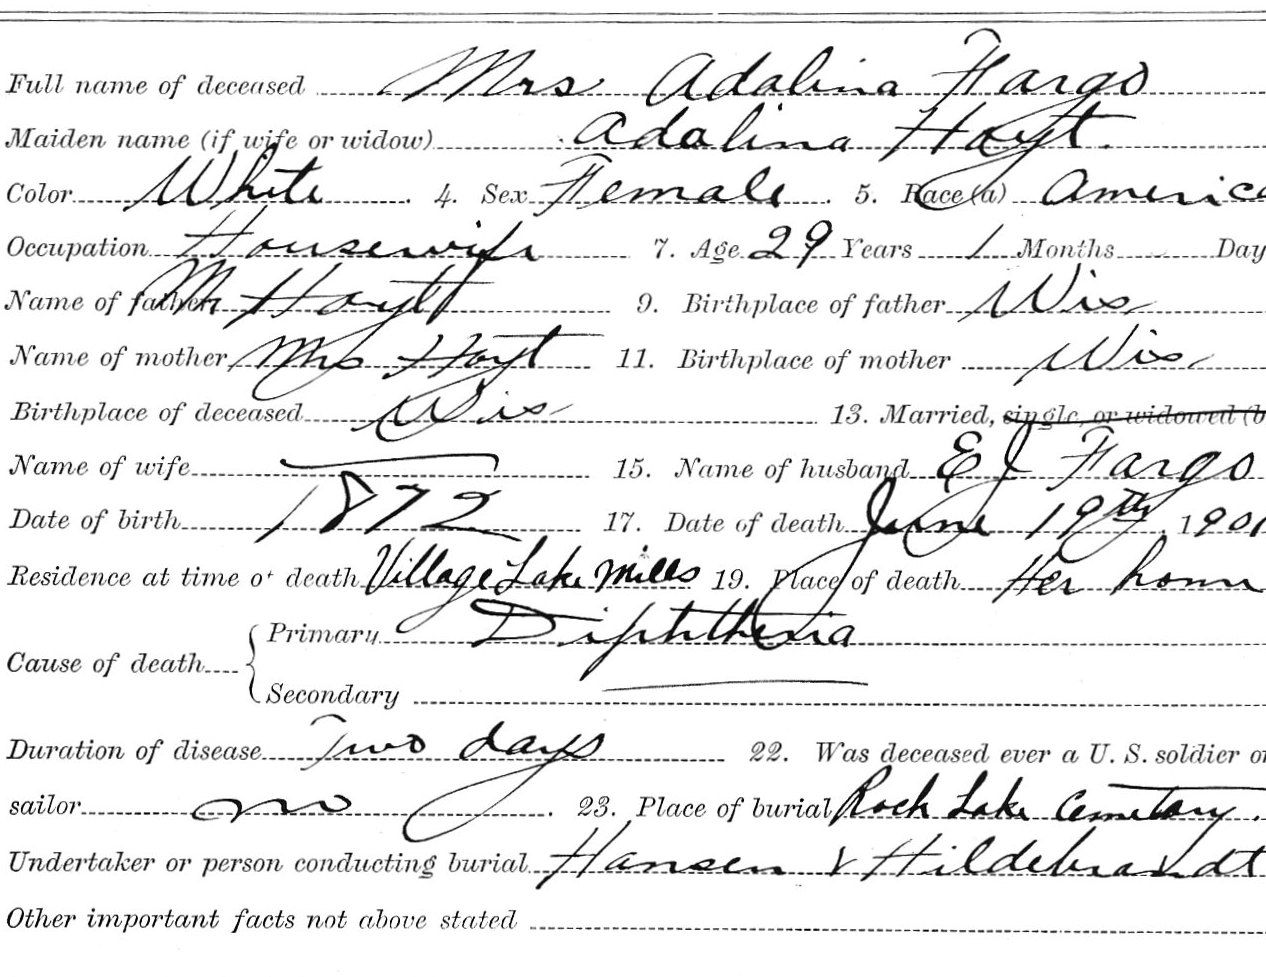 Full name of deceased Mrs Adalina Fargo
Maiden name (if wife or widow) Adalina Hoyt.
Color White. 4. Sex Female. 5. Race (a) America
Occupation Housewife 7. Age 29 Years 1 Months Day
Name of father Mr Hoyt 9. Birthplace of father Wis
Name of mother Mrs Hoyt 11. Birthplace of mother Wis
Birthplace of deceased Wis 13. Married, single, or widowed (b
Name of wife 15. Name of husband E J Fargo
Date of birth 1872 17. Date of death June 19th, 1901
Residence at time of death Village Lake Mills 19. Place of death Her home
Primary Diphtheria
Cause of death
Secondary
Duration of disease Two days 22. Was deceased ever a U. S. soldier or
sailor no. 23. Place of burial Rock Lake Cemetary.
Undertaker or person conducting burial Hansen & Hildebrandt
Other important facts not above stated